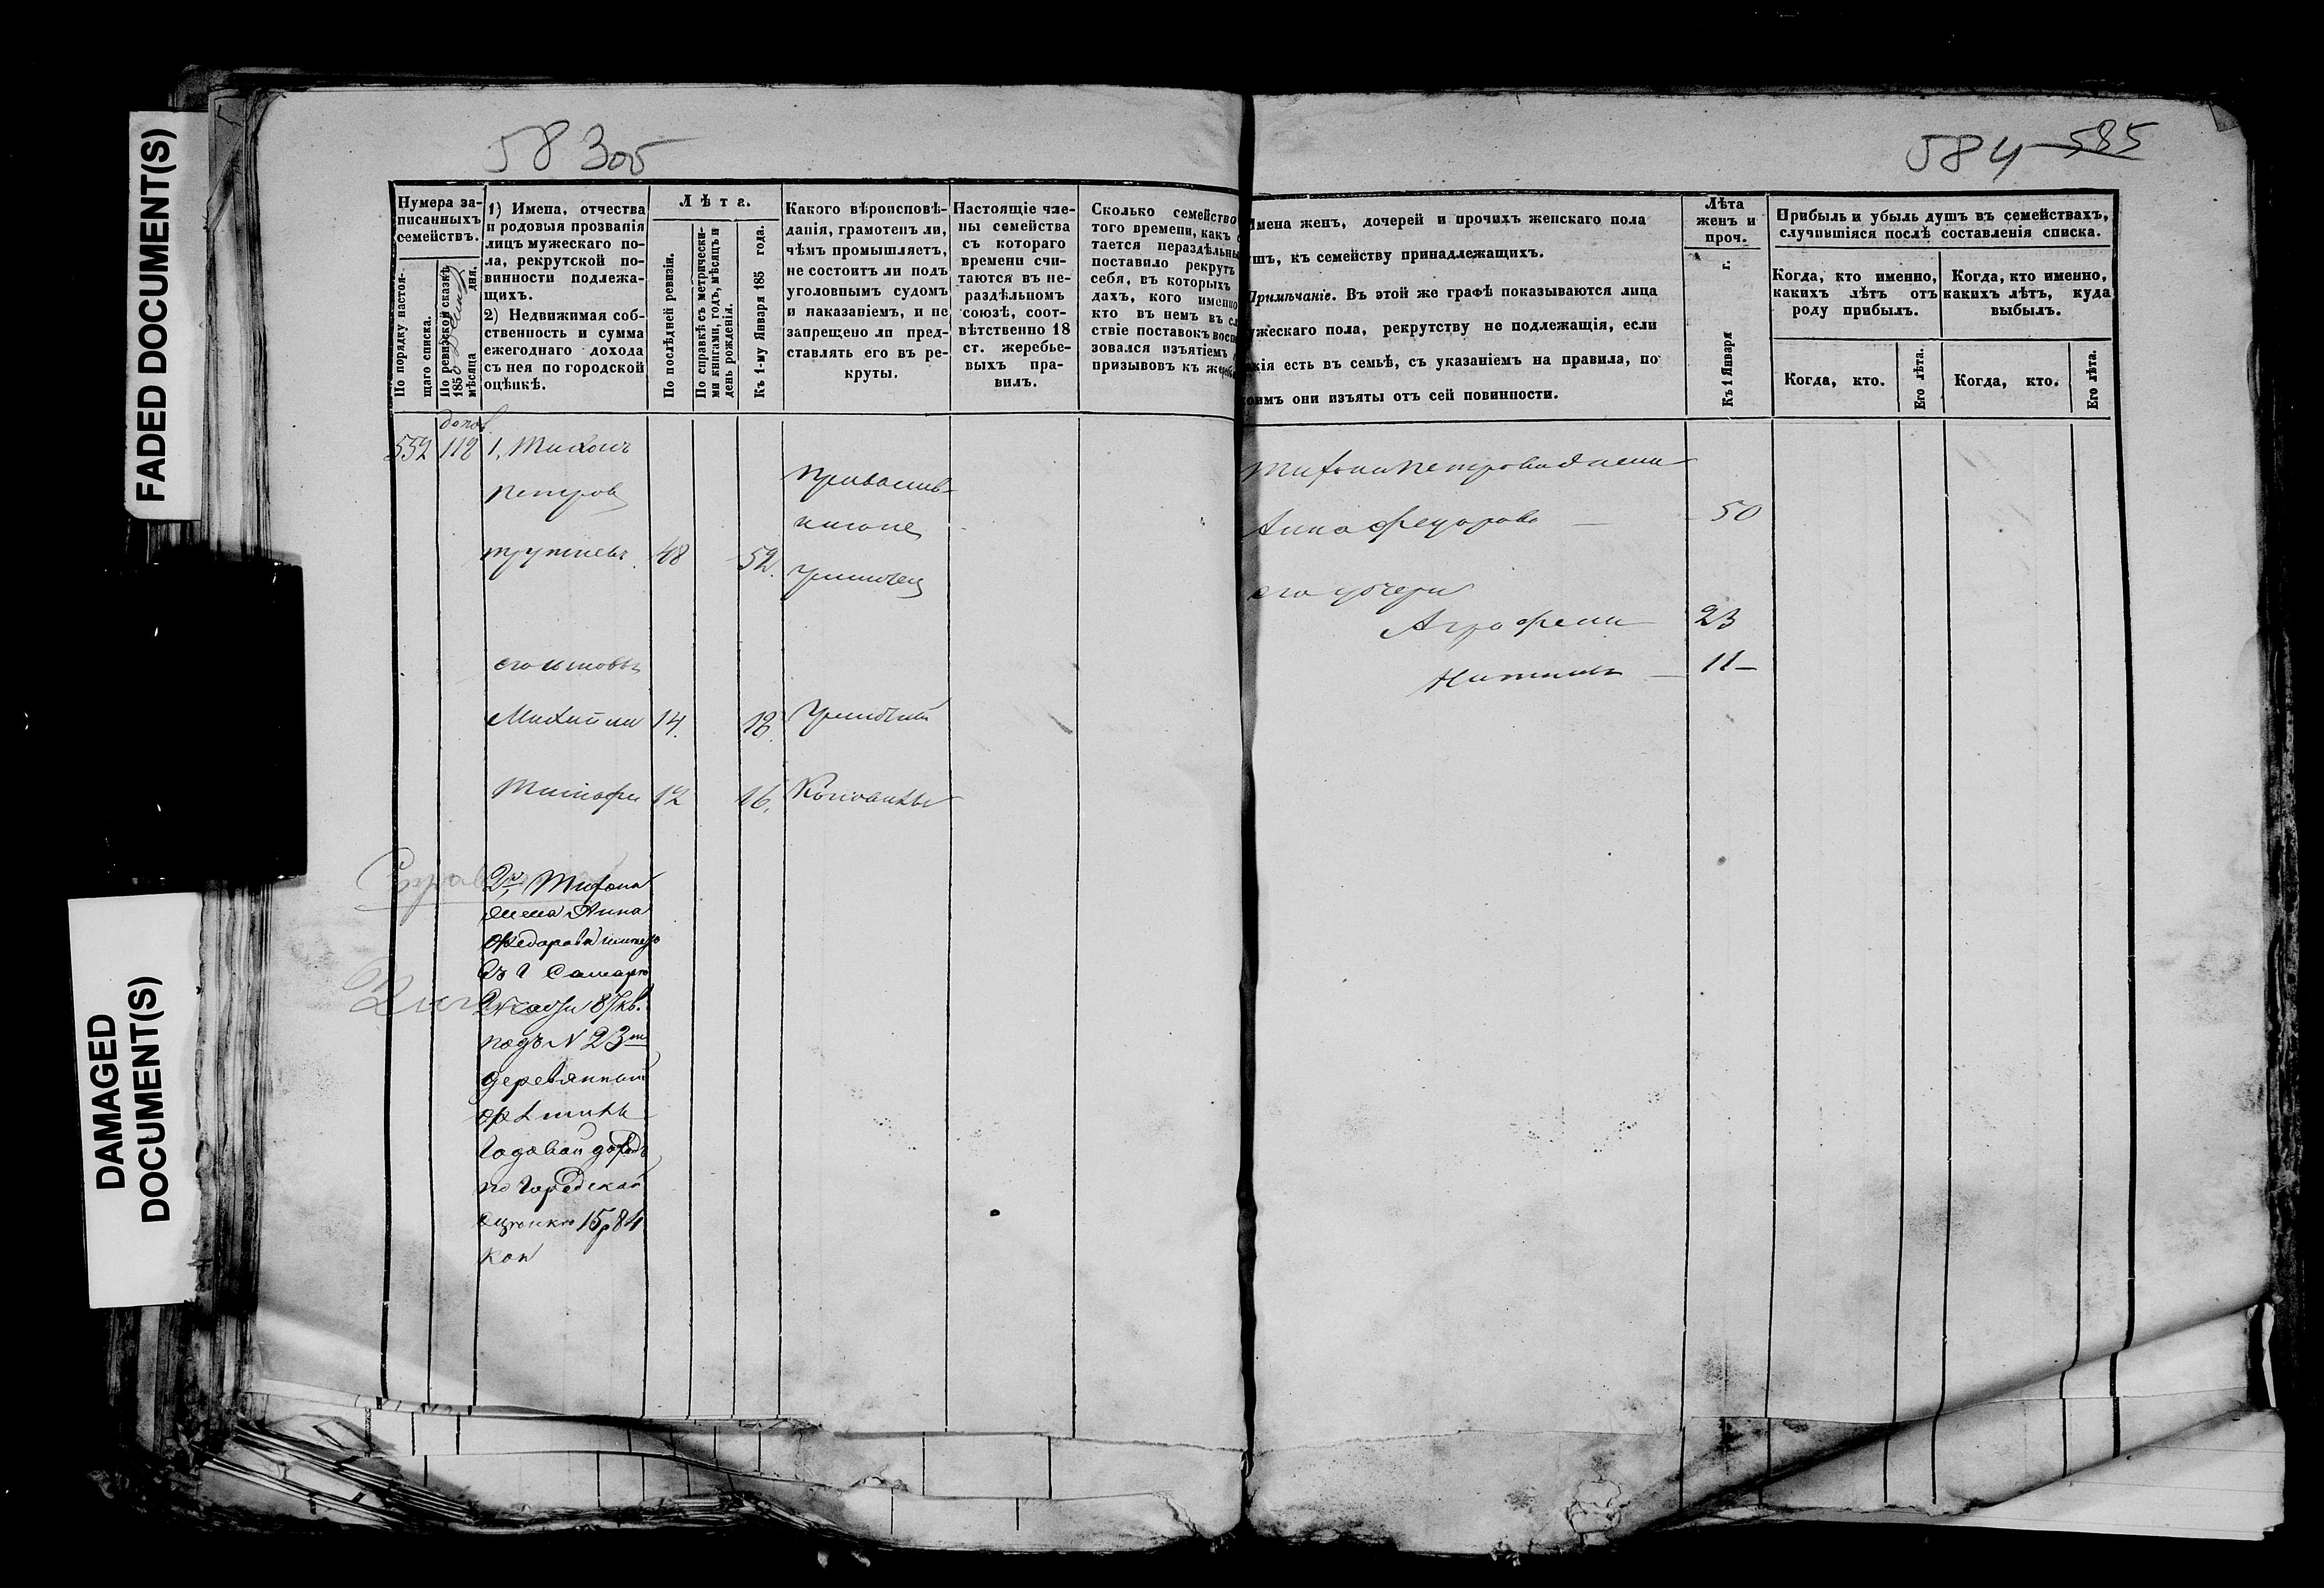 FADED DOCUMENT(S)
DAMAGED
DOCUMENT(S)
58 305
Нумера за-
писанныхъ
семействъ.
По порядку настоя-
щаго списка.
По ревизской сказкѣ
1850
мѣсяца дня.
1) Имена, отчества
и родовыя прозванія
лицъ мужескаго по-
ла, рекрутской по-
винности подлежа-
щихъ.
2) Недвижимая соб-
ственность и сумма
ежегоднаго дохода
съ нея по городской
оцѣнкѣ.
Лѣта.
По послѣдней ревизіи.
По справкѣ съ метрически-
ми книгами, годъ, мѣсяцъ и
день рожденія.
Къ 1-му Января 185 года.
Какого вѣроисповѣ-
данія, грамотенъ ли,
чѣмъ промышляетъ,
не состоитъ ли подъ
уголовнымъ судомъ
и наказаніемъ, и не
запрещено ли пред-
ставлять его въ ре-
круты.
Настоящіе чле-
ны семейства
съ котораго
времени счи-
таются въ не-
раздѣльномъ
союзѣ, соот-
вѣтственно 18
ст. жеребье-
выхъ пра-
вилъ.
Сколько семейство
того времени, какъ
тается нераздѣльны
поставило рекрутъ
себя, въ которыхъ
дахъ, кого именно
кто въ немъ въ сл
ствіе поставокъ восп
зовался изъятіемъ
призывовъ къ жереб
552 112 1. Тихонъ
Петровъ
48 52
его сыновья
Михайла 14. 18.
Тимофей 12 16.
2е, Тихона
жена Анна
Федорова имеетъ
въ г Самаре
въ части 87 кв.
подъ N 23м
деревянный
флигель
годовой доходъ
по городской
оценке 15р 84
коп
584 585
Имена женъ, дочерей и прочихъ женскаго пола
ушъ, къ семейству принадлежащихъ.
Примѣчаніе. Въ этой же графѣ показываются лица
ужескаго пола, рекрутству не подлежащія, если
акія есть въ семьѣ, съ указаніемъ на правила, по
коимъ они изъяты отъ сей повинности.
Лѣта
женъ и
проч.
Къ 1 Января г.
Прибыль и убыль душъ въ семействахъ,
случившіяся послѣ составленія списка.
Когда, кто именно,
какихъ лѣтъ отъ
роду прибылъ.
Когда, кто именно,
какихъ лѣтъ, куда
выбылъ.
Когда, кто.
Его лѣта.
Когда, кто.
Его лѣта.
Тихона Петрова жена
Анна Федорова — 50
его дочери
Аграфена 23
Наталья — 11 —